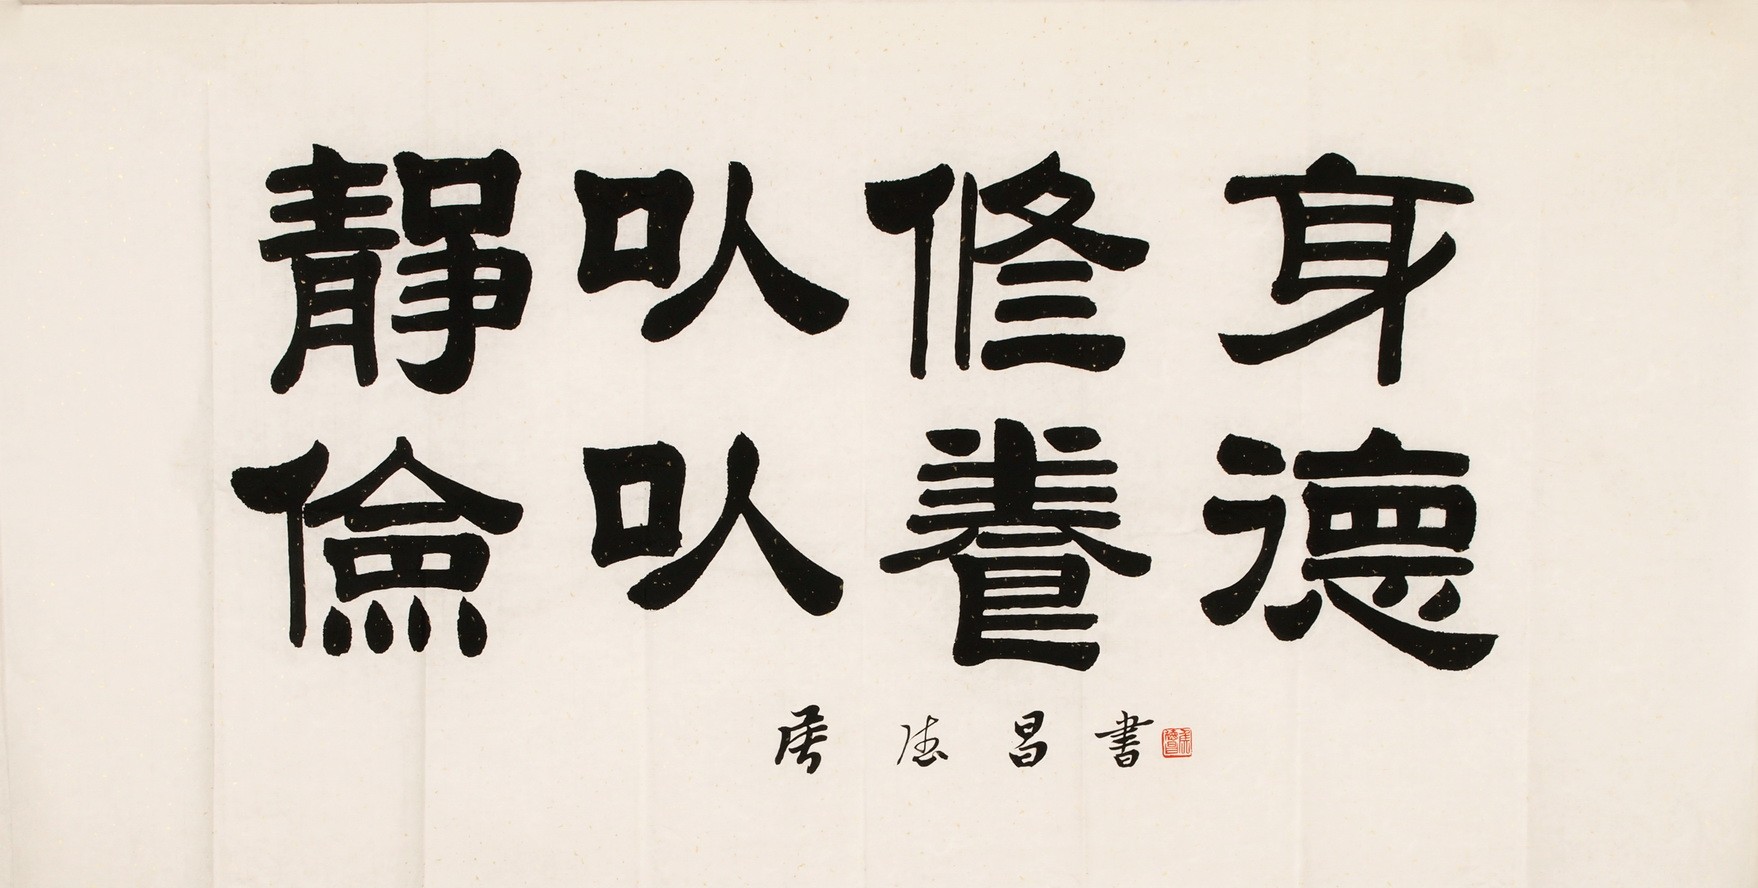 靜以修身
儉以養德
德昌書